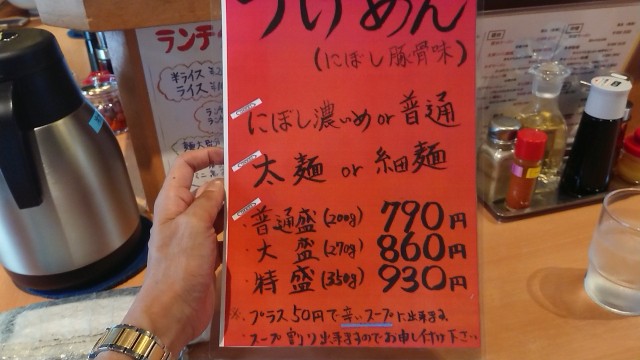 つけめん
(にぼし豚骨味)
にぼし濃いめor普通
太麺 or 細麺
普通盛(200g) 790円
大盛(270g) 860円
特盛(350g) 930円
※プラス50円で辛いスープに出来ます
スープ割り出来ますのでお申し付け下さい
ランチ
半ライス
ライス